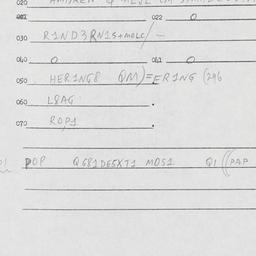 020
021 022 0
030 R1ND3RN1S+MOLC/-
040 0 041 0
050 HER1NG8 QM)=ER1NG (246
060 L8AG
070 ROP1
POP Q681DE5XT1 MOS1 Q1 ((PAP